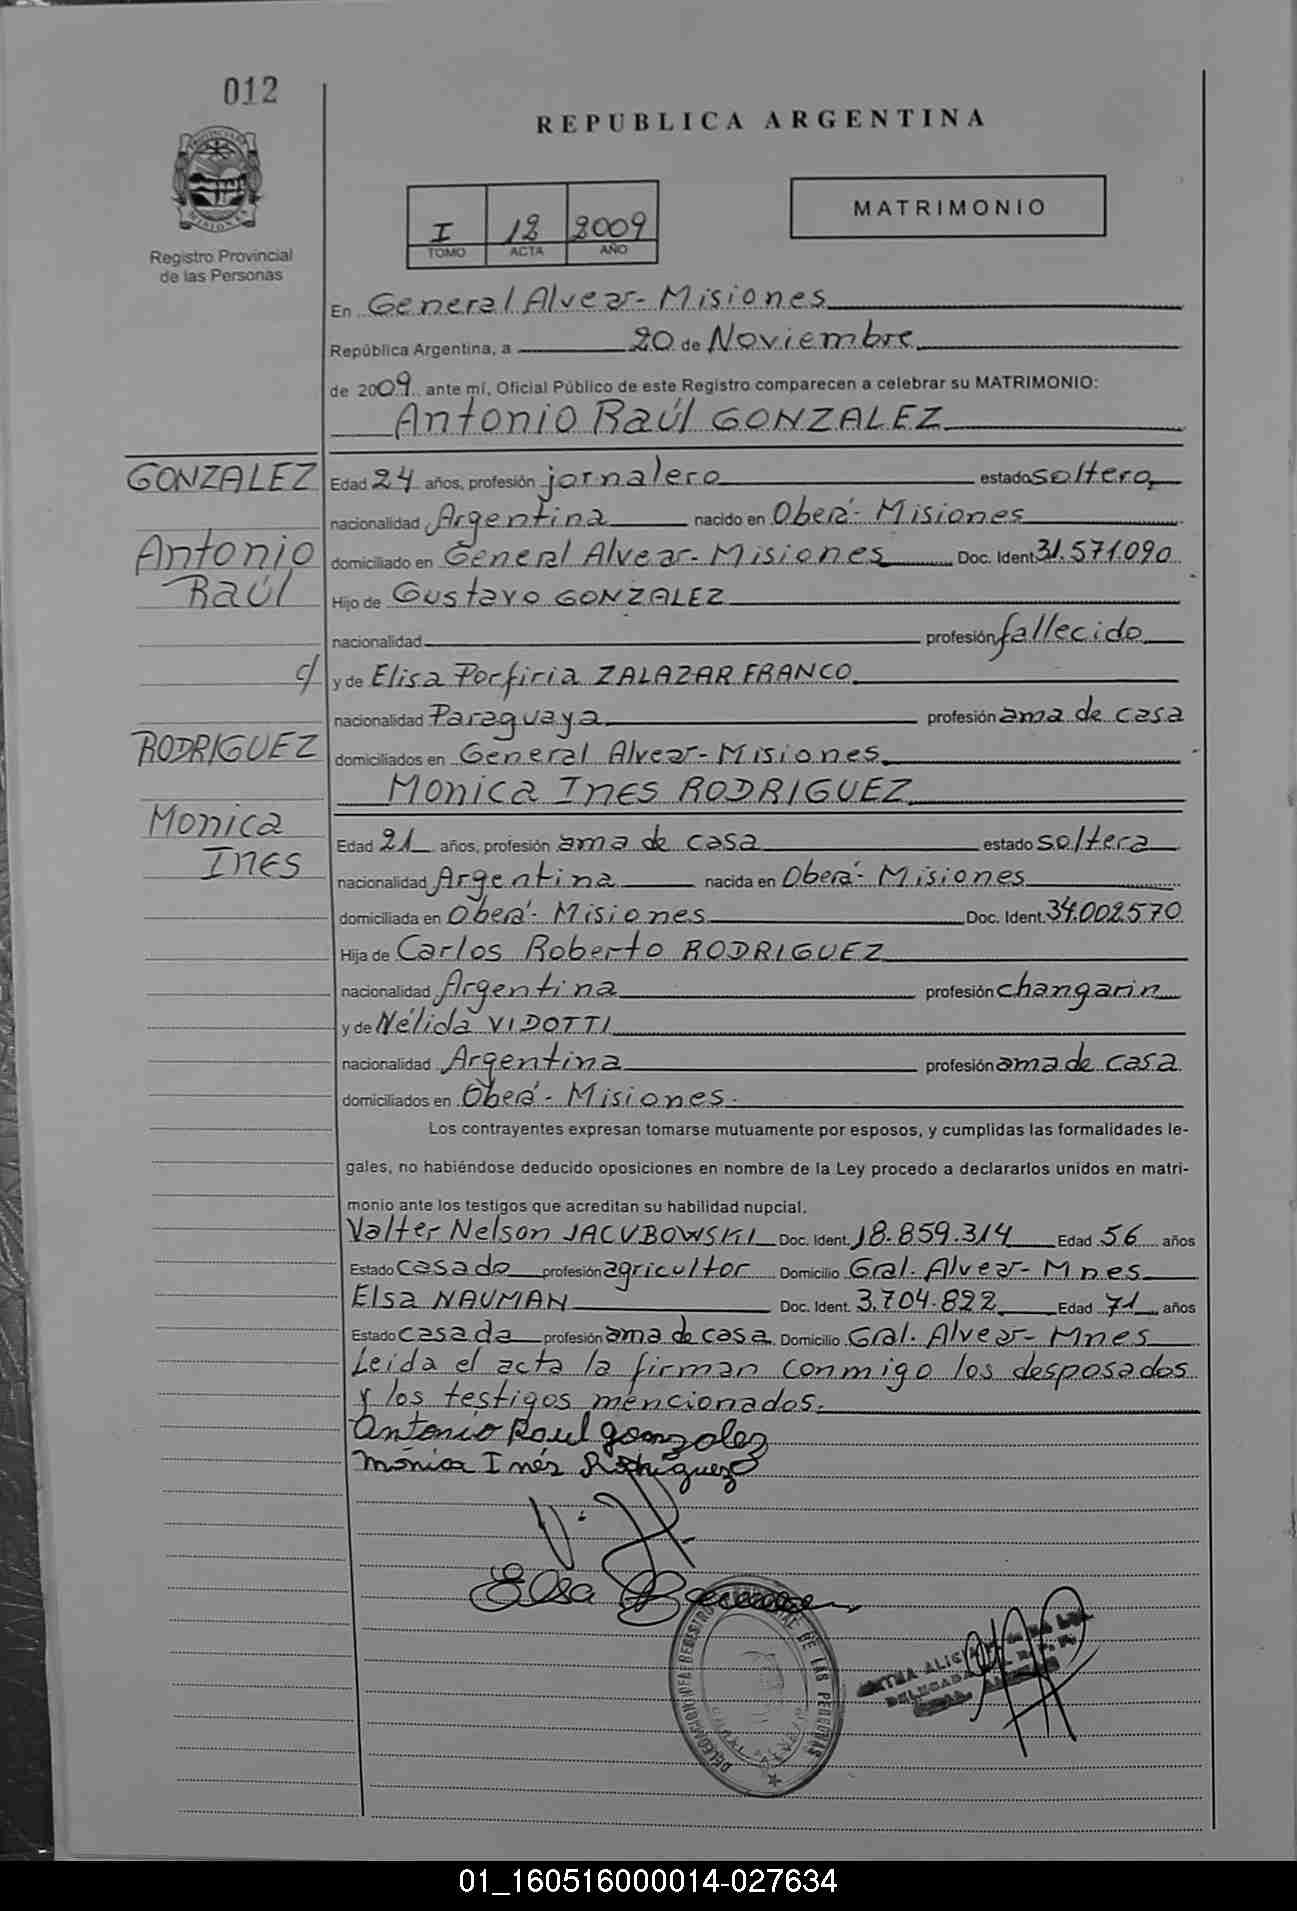 012
REPUBLICA ARGENTINA
MISIONES
Registro Provincial
de las Personas
I 12 2009
TOMO ACTA AÑO
MATRIMONIO
En General Alvear - Misiones
República Argentina, a 20 de Noviembre
de 2009 ante mí, Oficial Público de este Registro comparecen a celebrar su MATRIMONIO:
Antonio Raúl GONZALEZ
GONZALEZ
Antonio
Raúl
c/
RODRIGUEZ
Monica
INES
Edad 24 años, profesión jornalero estado soltero
nacionalidad Argentina nacido en Oberá - Misiones
domiciliado en General Alvear - Misiones Doc. Ident 31.571.090
Hijo de Gustavo GONZALEZ
nacionalidad profesión fallecido
y de Elisa Porfiria ZALAZAR FRANCO
nacionalidad Paraguaya profesión ama de casa
domiciliados en General Alvear - Misiones
Monica INES RODRIGUEZ
Edad 21 años, profesión ama de casa estado soltera
nacionalidad Argentina nacida en Oberá - Misiones
domiciliada en Oberá - Misiones Doc. Ident. 34.002.570
Hija de Carlos Roberto RODRIGUEZ
nacionalidad Argentina profesión changarin
y de Nélida VIDOTTI
nacionalidad Argentina profesión ama de casa
domiciliados en Oberá - Misiones
Los contrayentes expresan tomarse mutuamente por esposos, y cumplidas las formalidades le-
gales, no habiéndose deducido oposiciones en nombre de la Ley procedo a declararlos unidos en matri-
monio ante los testigos que acreditan su habilidad nupcial.
Valter Nelson JACUBOWSKI Doc. Ident. 18.859.314 Edad 56 años
Estado casado profesión agricultor Domicilio Gral. Alvear - Mnes
Elsa NAUMAN Doc. Ident. 3.704.822 Edad 71 años
Estado casada profesión ama de casa Domicilio Gral. Alvear - Mnes
Leída el acta la firman conmigo los desposados
y los testigos mencionados.
Antonio Raul gonzalez
Mónica Inés Rodriguez
Elsa
DE LAS PERSONAS
01_160516000014-027634